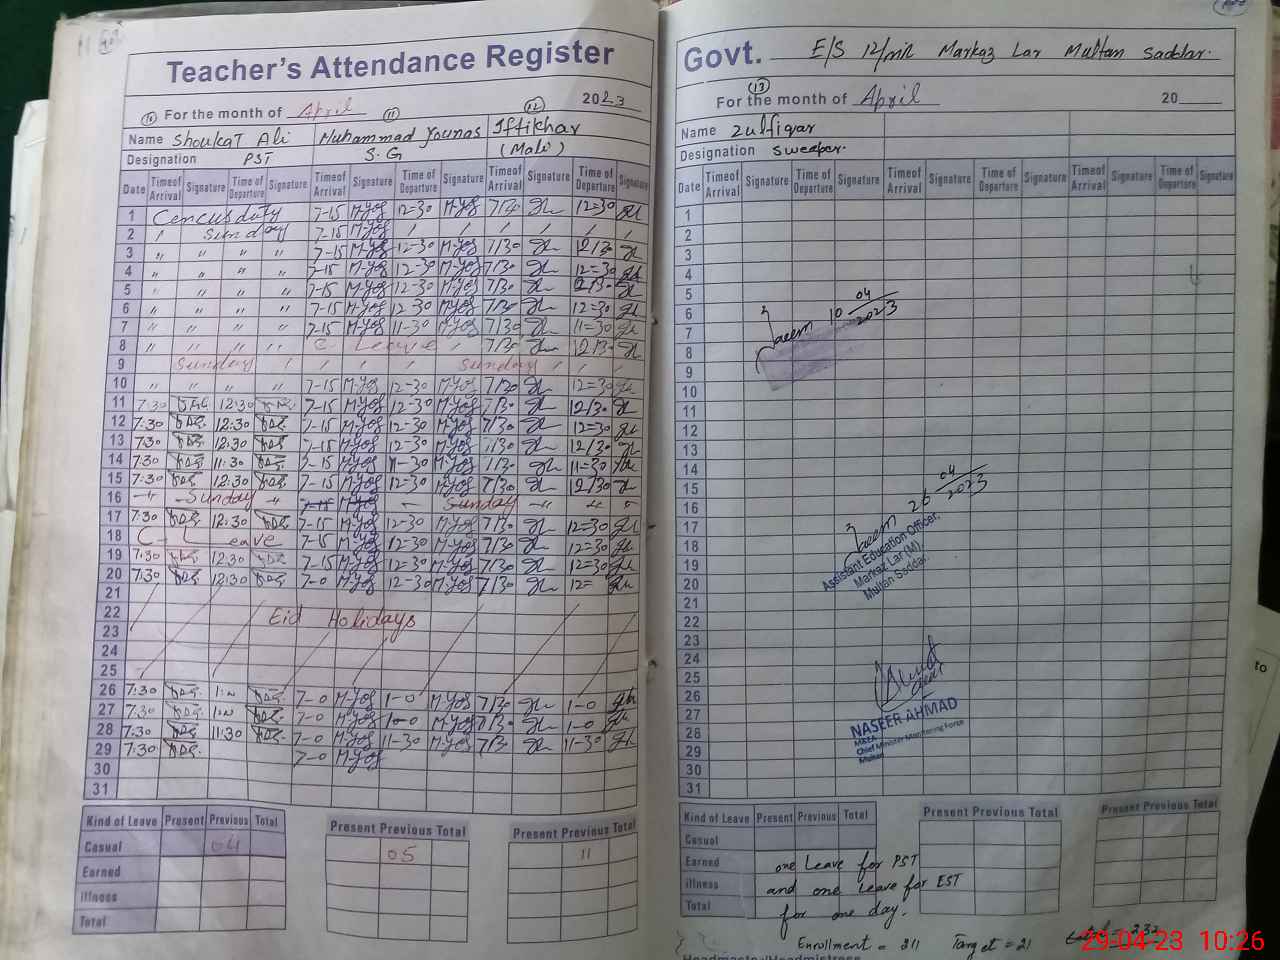 Teacher's Attendance Register
For the month of April 2023
10 11 12
Name Shoukat Ali Muhammad Younas Iftikhar
Designation PST S.G (Mali)
Date Time of Arrival Signature Time of Departure Signature Time of Arrival Signature Time of Departure Signature Time of Arrival Signature Time of Departure Signature
1 Cencus duty 7-15 M-Yos 12-30 M-Yos 7/30 12=30
2 " Sunday 7-15 M-Yos
3 " " " " 7-15 M-Yos 12-30 M-Yos 7/30 12/30
4 " " " " 7-15 M-Yos 12-30 M-Yos 7/30 12=30
5 " " " " 7-15 M-Yos 12-30 M-Yos 7/30 12/30
6 " " " " 7-15 M-Yos 12-30 M-Yos 7/30 12=30
7 " " " " 7-15 M-Yos 11-30 M-Yos 7/30 11=30
8 " " " " C Leave 7/30 12/30
9 Sunday Sunday
10 " " " " 7-15 M-Yos 12-30 M-Yos 7/30 12=30
11 7:30 12:30 7-15 M-Yos 12-30 M-Yos 7/30 12/30
12 7:30 12:30 7-15 M-Yos 12-30 M-Yos 7/30 12=30
13 7:30 12:30 7-15 M-Yos 12-30 M-Yos 7/30 12/30
14 7:30 11:30 7-15 M-Yos 11-30 M-Yos 7/30 11=30
15 7:30 12:30 7-15 M-Yos 12-30 M-Yos 7/30 12/30
16 Sunday 7-15 M-Yos Sunday
17 7:30 12:30 7-15 M-Yos 12-30 M-Yos 7/30 12=30
18 C - Leave 7-15 M-Yos 12-30 M-Yos 7/30 12=30
19 7:30 12:30 7-15 M-Yos 12-30 M-Yos 7/30 12=30
20 7:30 12:30 7-0 M-Yos 12-30 M-Yos 7/30 12=
21
22 Eid Holidays
23
24
25
26 7:30 7-0 M-Yos 1-0 M-Yos 7/30 1-0
27 7:30 7-0 M-Yos 1-0 M-Yos 7/30 1-0
28 7:30 11:30 7-0 M-Yos 11-30 M-Yos 7/30 11-30
29 7:30 7-0 M-Yos
30
31
Kind of Leave Present Previous Total Present Previous Total Present Previous Total
Casual 04 05 11
Earned
Illness
Total
Govt. E/S 12/MR Markaz Lar Multan Saddar.
13
For the month of April 20
Name Zulfiqar
Designation Sweaper.
Date Time of Arrival Signature Time of Departure Signature Time of Arrival Signature Time of Departure Signature Time of Arrival Signature Time of Departure Signature
1
2
3
4
5
6
7
8
9
10
11
12
13
14
15
16
17
18
19
20
21
22
23
24
25
26
27
28
29
30
31
10 04 2023
26 04 2023
Assistant Education Officer,
Markaz Lar (M)
Multan Saddar.
NASEER AHMAD
MEA
Chief Minister Monitoring Force
Multan
Kind of Leave Present Previous Total Present Previous Total Present Previous Total
Casual
Earned
Illness
Total
one Leave for PST
and one leave for EST
for one day.
Enrollment = 311 Target = 21
Headmaster/Headmistress
to
29-04-23 10:26